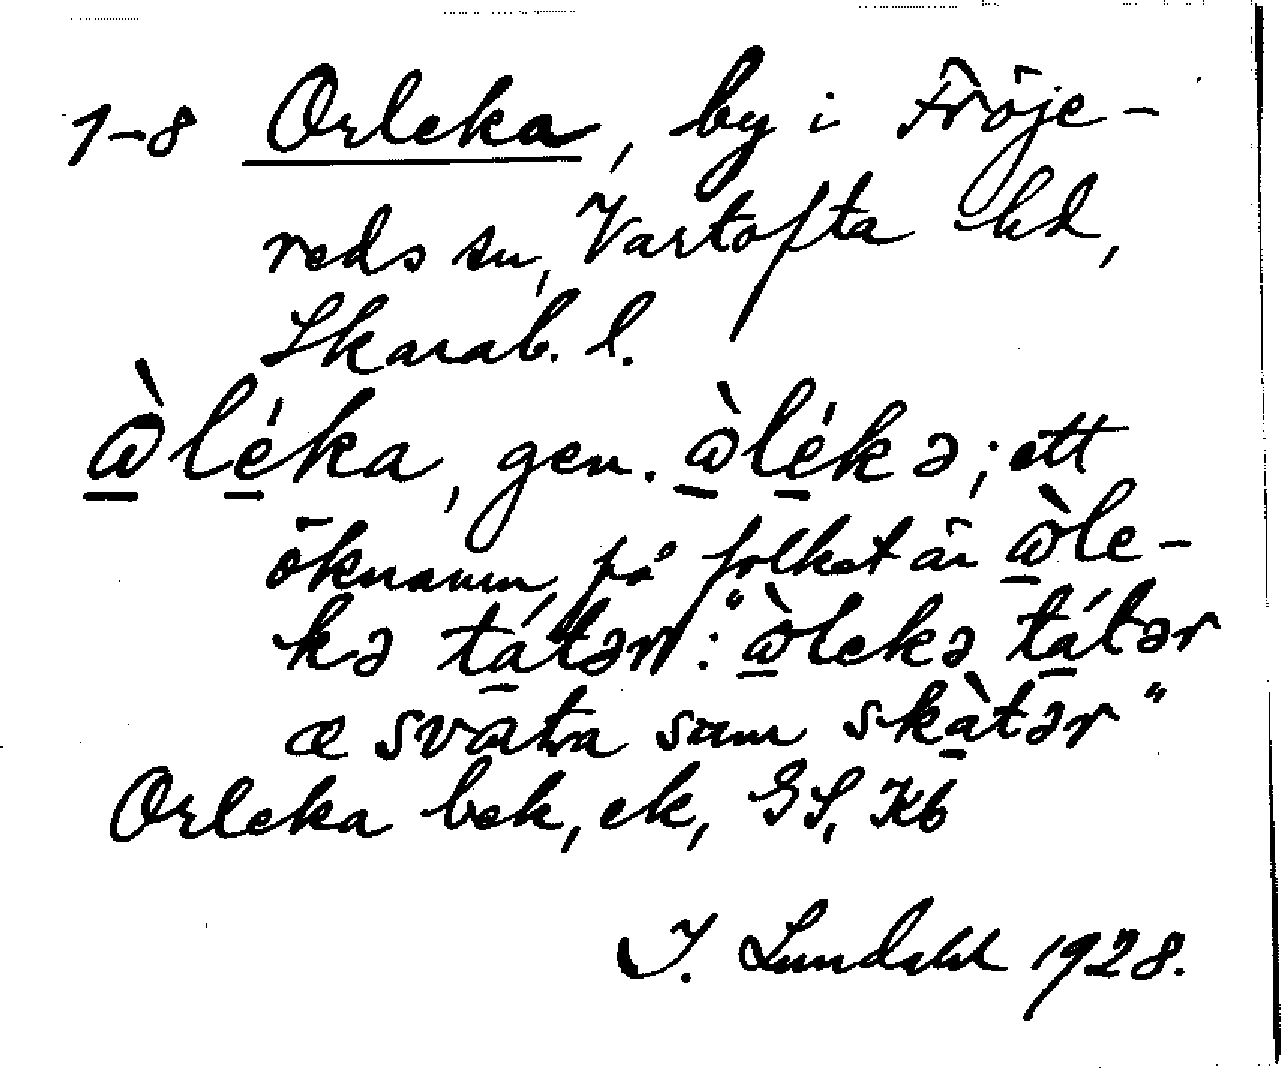 1-8 Orleka, by i Fröje-
reds sn, Vartofta hd,
Skarab. l.
ɷ̀léka, gen. ɷ̀lékə; ett
öknamn på folket är ɷ̀le-
kə tátər: "ɷ̀lekə tátər
æ svata sum skàtər"
Orleka bek, ek, GS, Kb
I. Lundahl 1928.